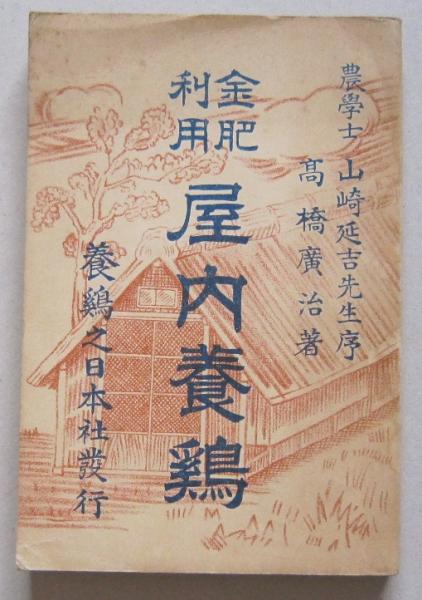 農學士 山崎延吉先生序
髙橋廣治著
金肥
利用
屋内養鷄
養鷄之日本社發行